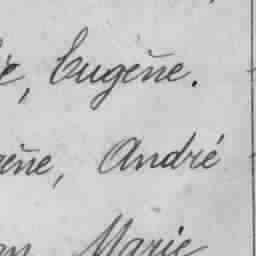 , Eugène.
ène, André
Marie